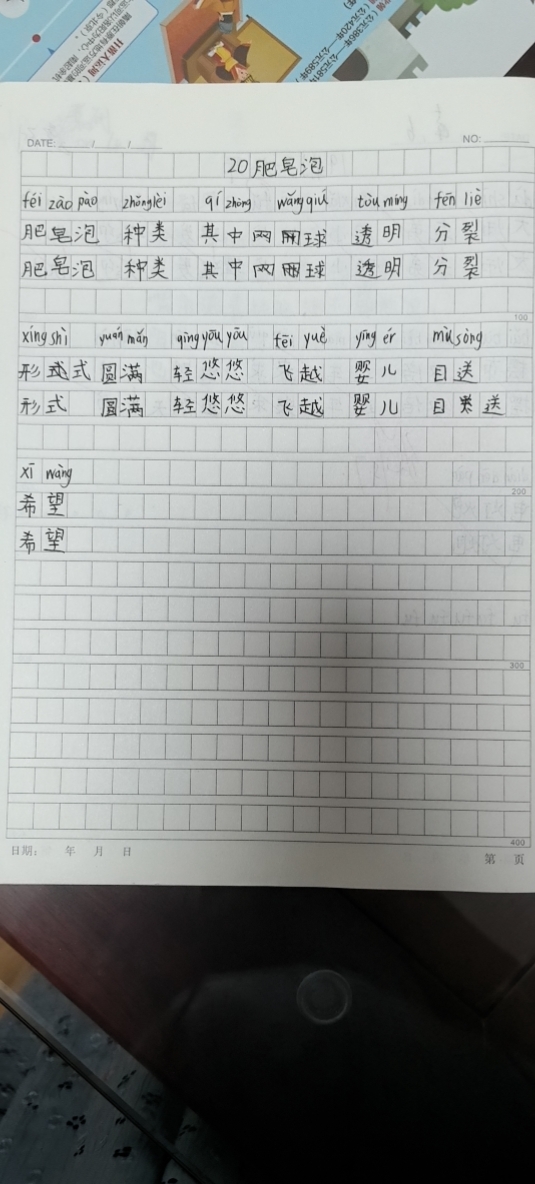 DATE: / /
NO:
20 肥皂泡
féi zào pào zhǒng lèi qí zhōng wǎng qiú tòu míng fēn liè
肥皂泡 种类 其中 网 网球 透明 分裂
肥皂泡 种类 其中 网 网球 透明 分裂
100
xíng shì yuán mǎn qīng yōu yōu fēi yuè yīng ér mù sòng
形式式 圆满 轻悠悠 飞越 婴儿 目送
形式 圆满 轻悠悠 飞越 婴儿 目送
xī wàng
200
希望
希望
300
400
日期: 年 月 日
第 页